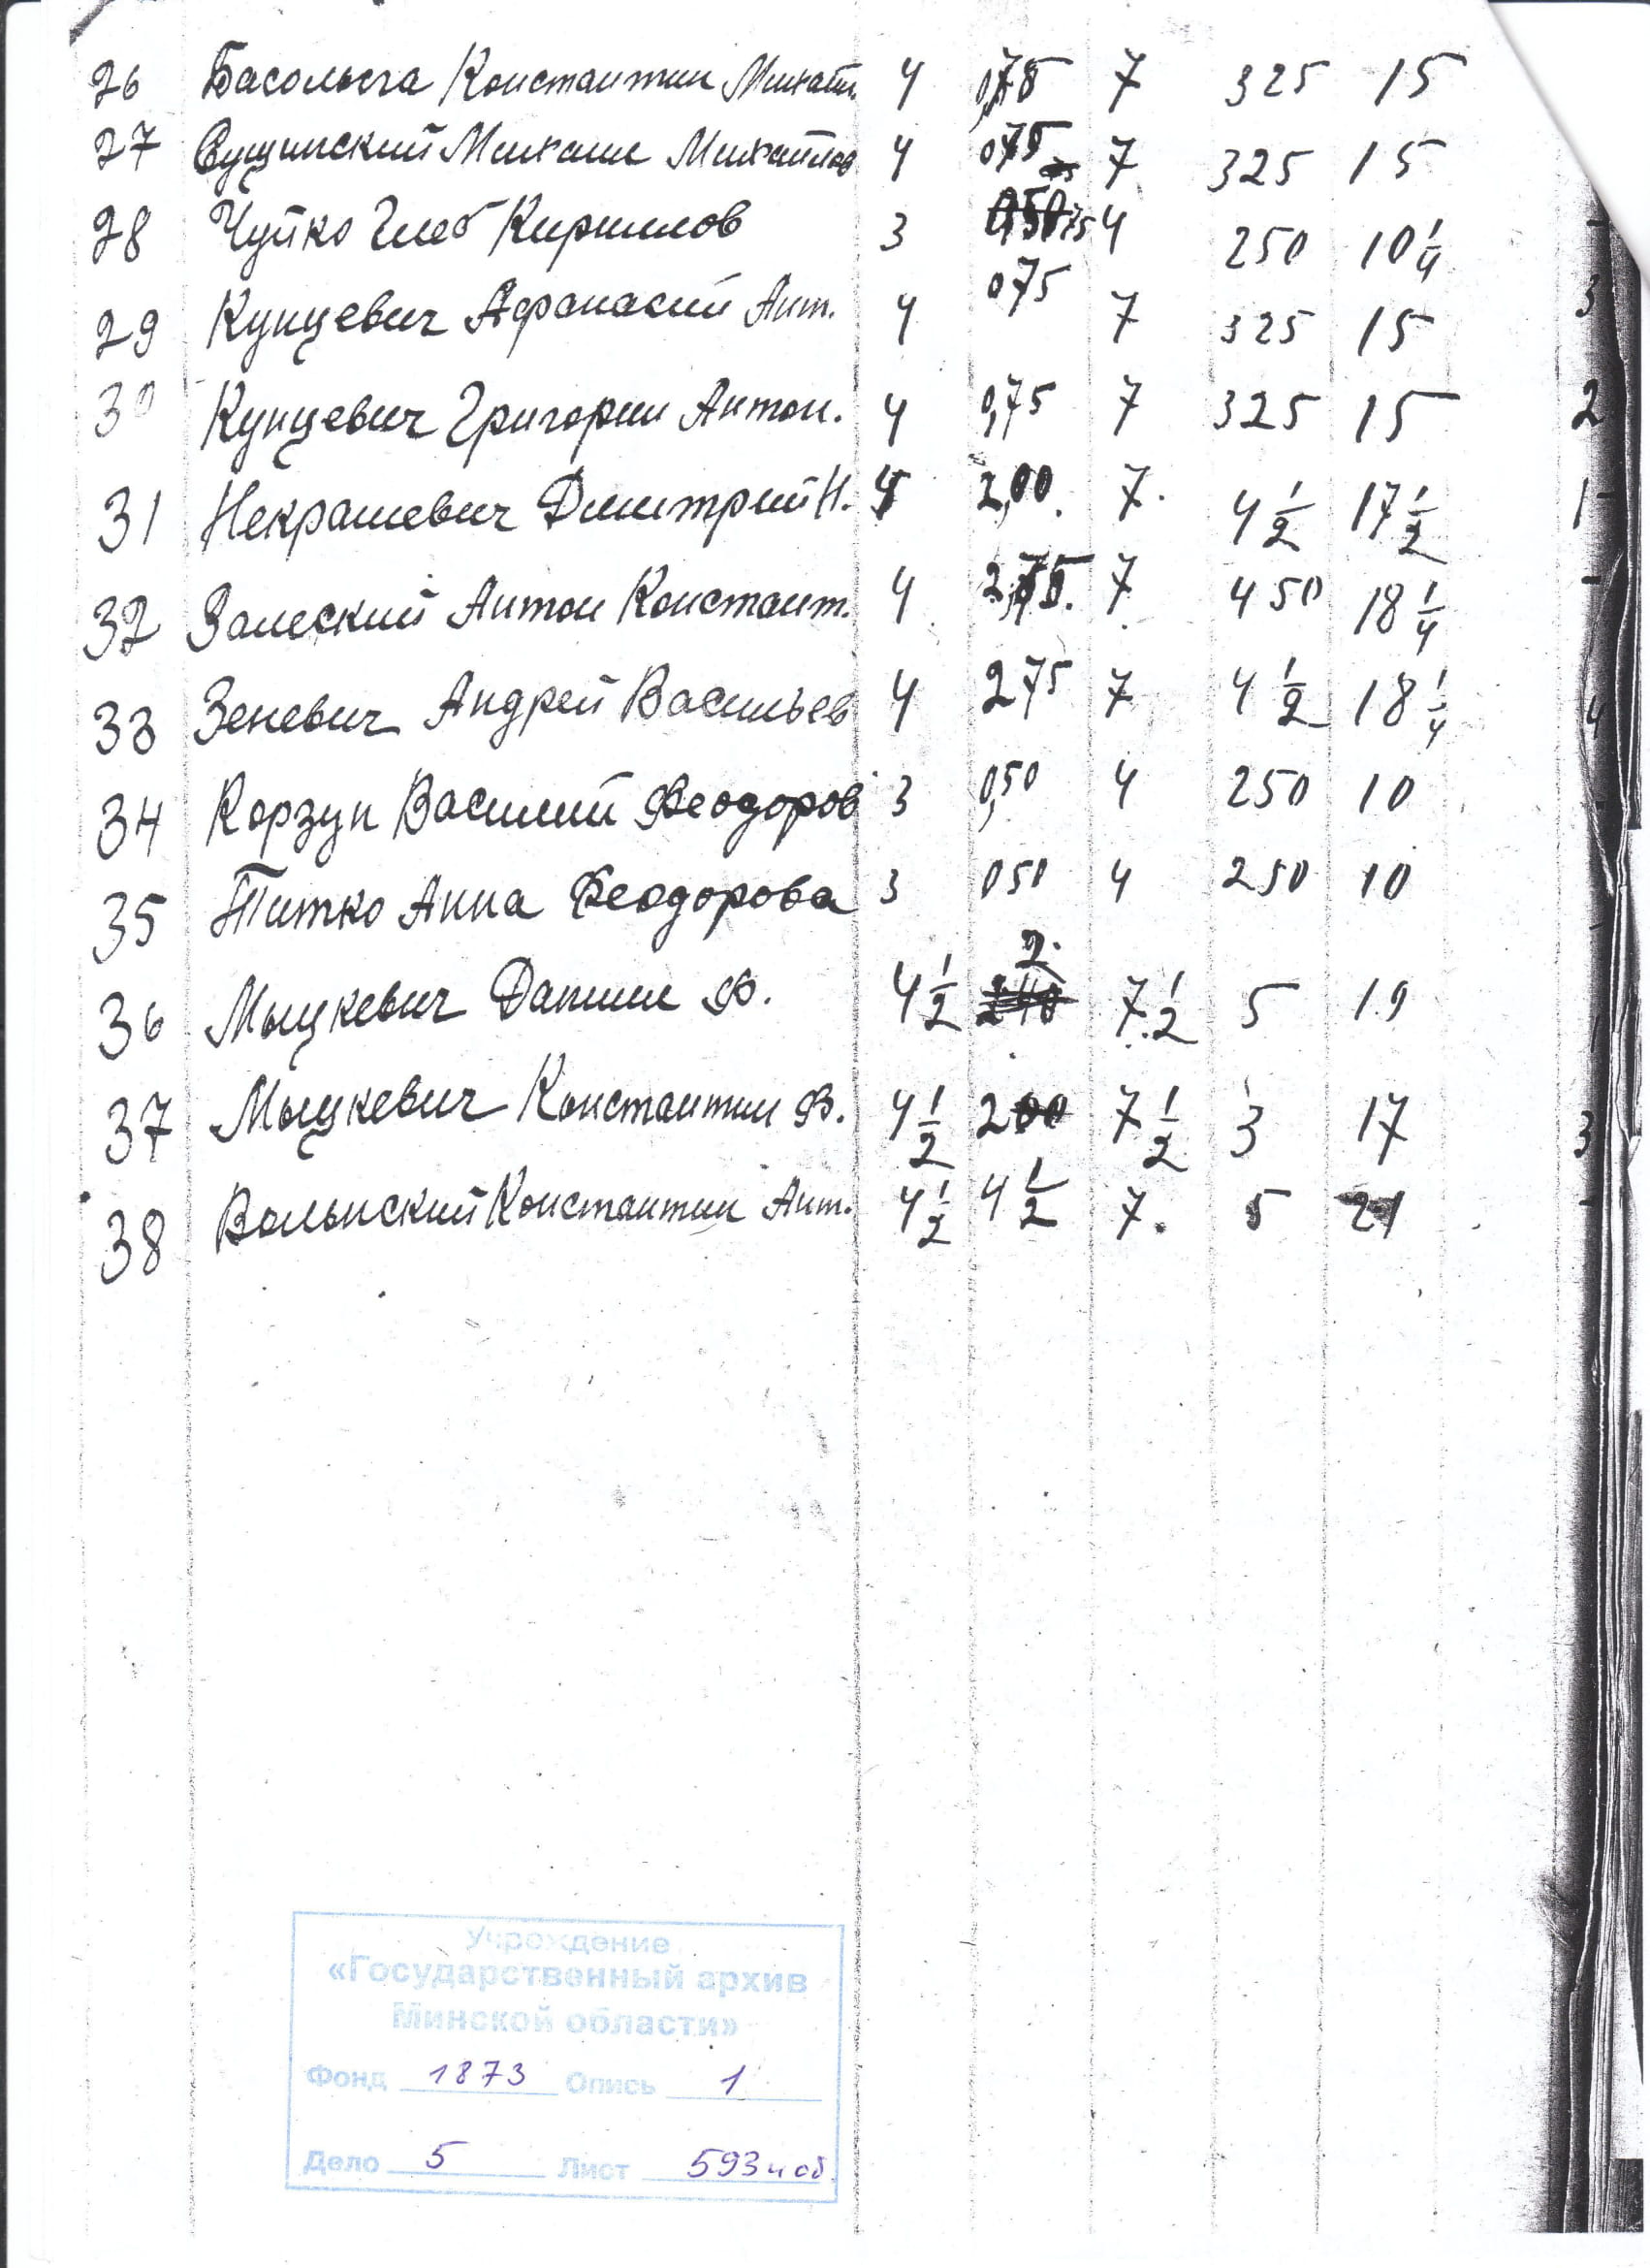 26 Басолыга Константин Михайл. 4 0,75 7 325 15
27 Сущинский Михаил Михайлов 4 075 7 325 15
28 Чуйко Глеб Кирилов 3 75 4 250 10 1/4
29 Кунцевич Афанасий Ант. 4 075 7 325 15
30 Кунцевич Григории Антон. 4 0,75 7 325 15
31 Некрашевич Дмитрий Н. 4 2,00. 7. 4 1/2 17 1/2
32 Залеский Антон Констант. 4 2,75. 7 4 50 18 1/4
33 Зеневич Андрей Васильев 4 2 75 7 4 1/2 18 1/4
34 Корзун Василий Феодоров 3 0,50 4 250 10
35 Титко Анна Феодорова 3 050 4 250 10
36 Мыцкевич Данил Ф. 4 1/2 2. 7 1/2 5 19
37 Мыцкевич Константин Ф. 4 1/2 200 7 1/2 3 17
38 Волынский Константин Ант. 4 1/2 4 1/2 7. 5 21
Учреждение
«Государственный архив
Минской области»
Фонд 1873 Опись 1
Дело 5 Лист 593 и об.